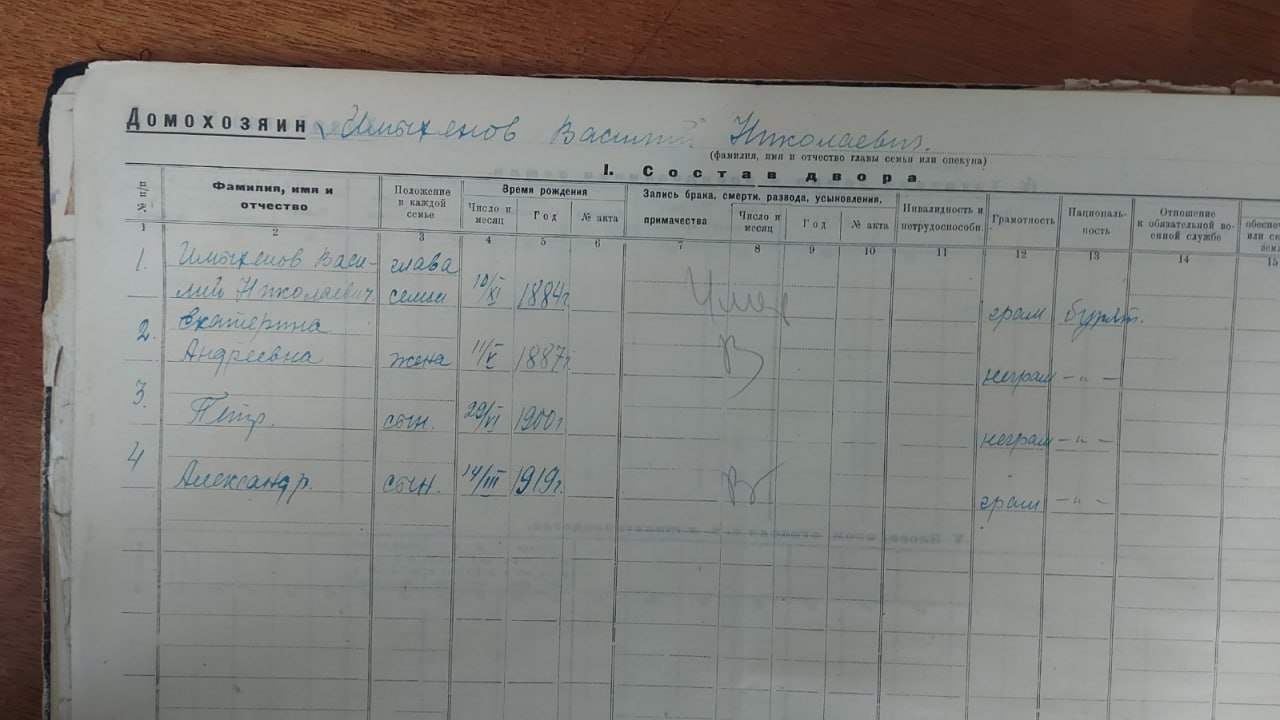 Домохозяин Имыхенов Василий Николаевич.
(фамилия, имя и отчество главы семьи или опекуна)
I. Состав двора
№ п/п
Фамилия, имя и отчество
Положение в каждой семье
Время рождения
Число и месяц
Год
№ акта
Запись брака, смерти, развода, усыновления,
примачества
Число и месяц
Год
№ акта
Инвалидность и нетрудоспособн.
Грамотность
Националь-ность
Отношение к обязательной во-енной службе
1 2 3 4 5 6 7 8 9 10 11 12 13 14 15
1. Имыхенов Васи- глава
лий Николаевич семьи 10/XI 1884г грам бурят.
2. Екатерина
Андреевна жена 11/X 1887г. неграм —„—
3. Петр. сын. 29/VI 1900г. неграм —„—
4 Александр. сын. 14/III 1919г. грам —„—